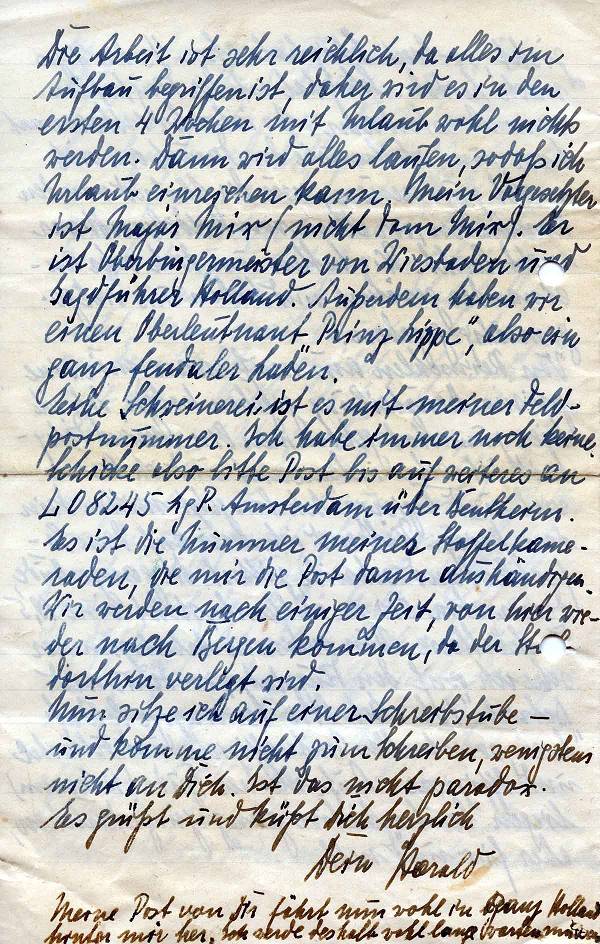 Die Arbeit ist sehr reichlich, da alles im
Aufbau begriffen ist, daher wird es in den
ersten 4 Wochen mit Urlaub wohl nichts
werden. Dann wird alles laufen, sodaß ich
Urlaub einreichen kann. Mein Vorgesetzter
ist Major Mix (nicht Tom Mix). Er
ist Oberbürgermeister von Wiesbaden und
Jagdführer Holland. Außerdem haben wir
einen Oberleutnant „Prinz Lippe", also ein
ganz feudaler Laden.
Schreinerei ist es mit meiner Feld-
postnummer. Ich habe immer noch keine.
Schicke also bitte Post bis auf weiteres an
L 08245 LgP. Amsterdam über Bentheim.
Es ist die Nummer meines Staffelkame-
raden, die mir die Post dann aushändigen.
Wir werden nach einiger Zeit, von hier wie-
der nach Bergen kommen, da der
dorthin verlegt wird.
Nun sitze ich auf einer Schreibstube –
und komme nicht zum Schreiben, wenigstens
nicht an Dich. Ist das nicht paradox.
Es grüßt und küßt Dich herzlich
Dein Harald
Meine Post von Dir fährt nun wohl in ganz Holland
hinter mir her. Ich werde deshalb wohl lange warten müssen